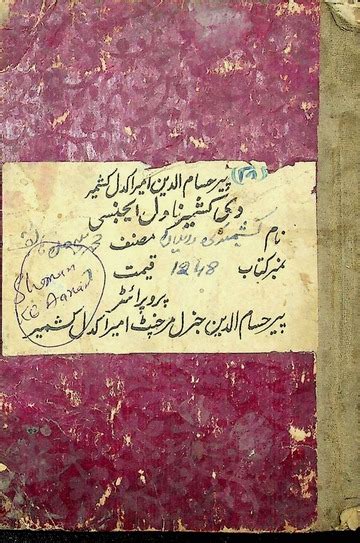 پیر حسام الدین امیراکدل کشمیر
دی کشمیر ناول ایجنسی
نام کشمیر کی مصنف
نمبر کتاب 1248 قیمت
پروپرائٹر
پیر حسام الدین جنرل مرچنٹ امیراکدل کشمیر
Shoman
Ke Aanand